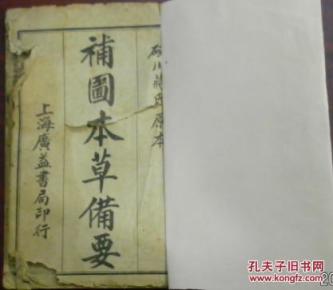 補圖本草備要
上海廣益書局印行
孔夫子旧书网
20